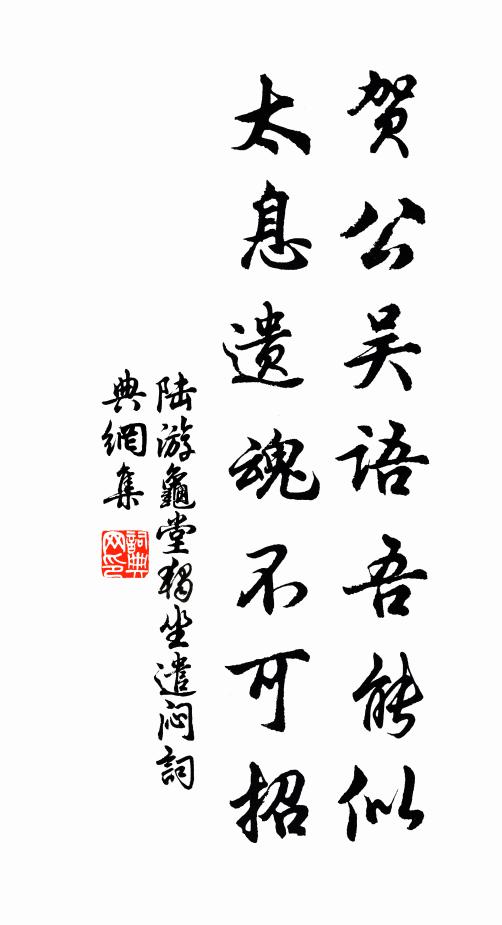 贺公吴语吾能似
太息遗魂不可招
陆游龜堂独坐遣闷詞
典網集
詞典网印